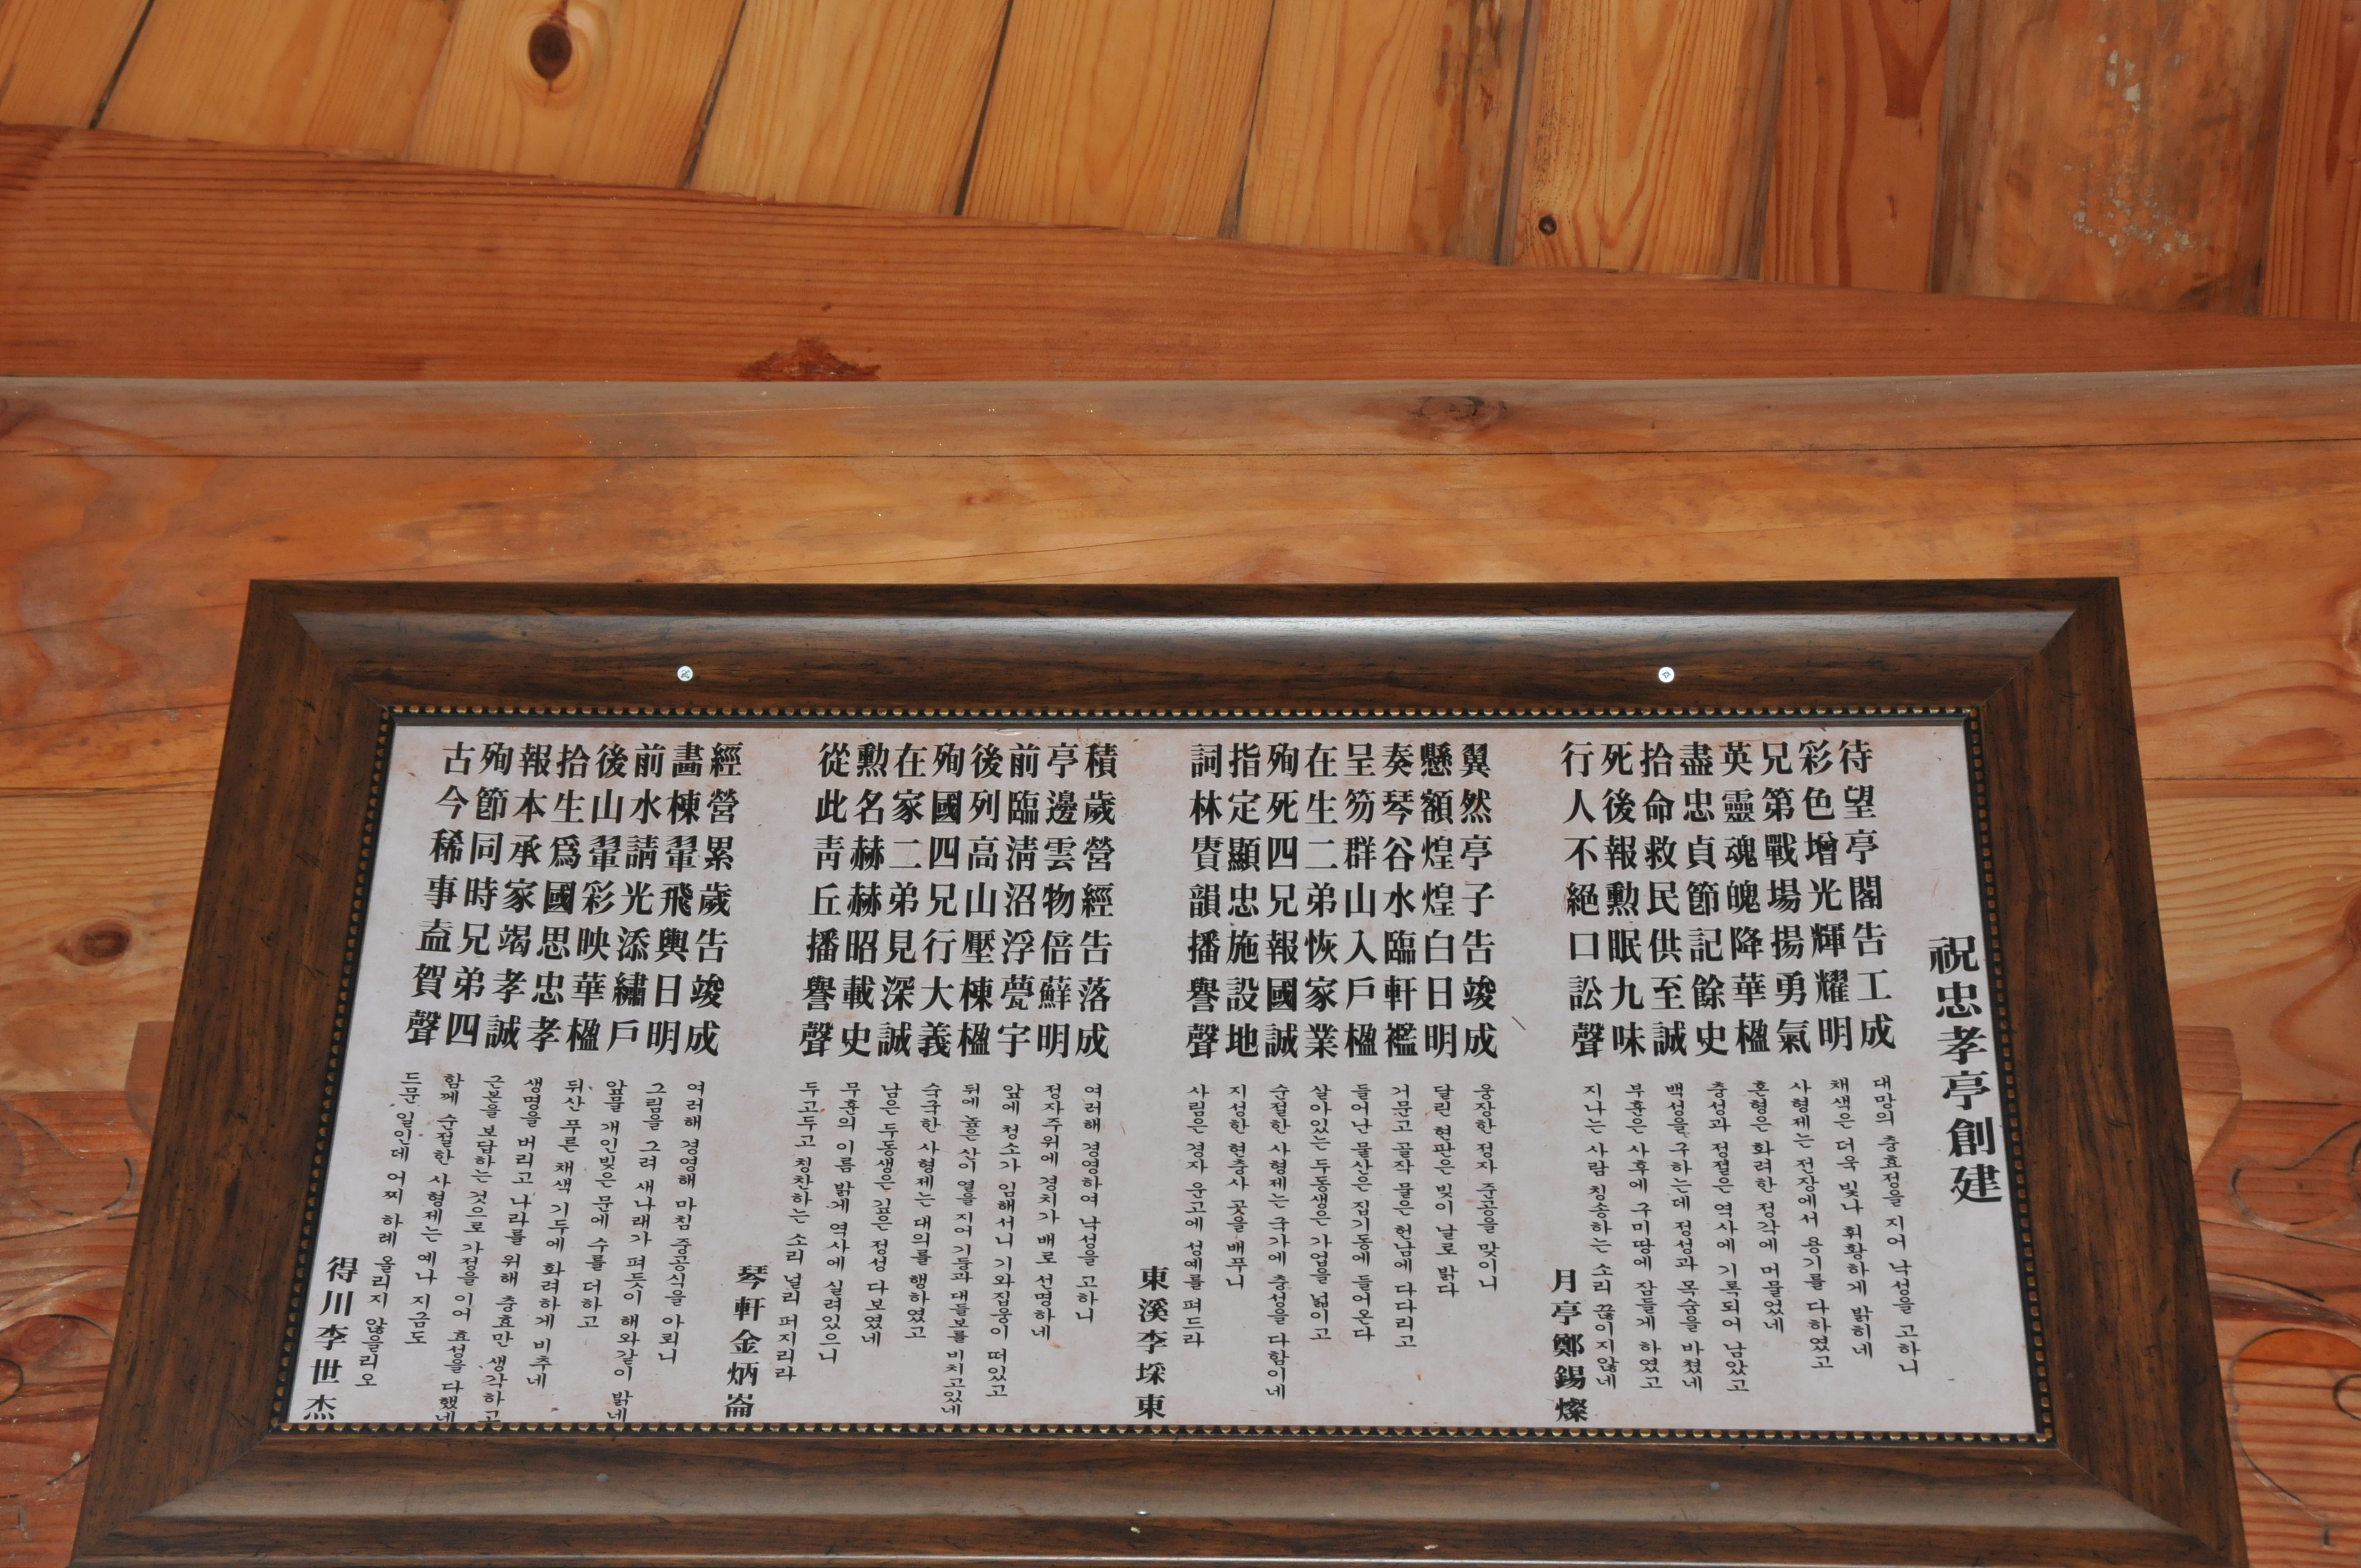 祝忠孝亭創建
待望亭閣告工成
彩色增光輝耀明
兄第戰場揚勇氣
英靈魂魄降華楹
盡忠貞節記餘史
拾命救民供至誠
死後報勳眠九味
行人不絕口訟聲
대망의 충효정을 지어 낙성을 고하니
채색은 더욱 빛나 휘황하게 밝히네
사형제는 전장에서 용기를 다하였고
혼형은 화려한 정각에 머물었네
충성과 정절은 역사에 기록되어 남았고
백성을 구하는데 정성과 목숨을 바쳤네
부훈은 사후에 구미땅에 잠들게 하였고
지나는 사람 칭송하는 소리 끊이지않네
月亭鄭錫燦
翼然亭子告竣成
懸額煌煌白日明
奏琴谷水臨軒襤
呈笏群山入戶楹
在生二弟恢家業
殉死四兄報國誠
指定顯忠施設地
詞林賡韻播譽聲
웅장한 정자 준공을 맞이니
달린 현판은 빛이 날로 밝다
거문고 골작 물은 헌남에 다다리고
들어난 물산은 집기동에 들어온다
살아있는 두동생은 가업을 넓이고
순절한 사형제는 국가에 충성을 다함이네
지성한 현충사 곳을 배푸니
사림은 경자 운고에 성예를 펴드라
東溪李埰東
積歲營經告落成
亭邊雲物倍蘇明
前臨淸沼浮甍宇
後列高山壓棟楹
殉國四兄行大義
在家二弟見深誠
勳名赫赫昭載史
從此靑丘播譽聲
여러해 경영하여 낙성을 고하니
정자주위에 경치가 배로 선명하네
앞에 청소가 임해서니 기와집웅이 떠있고
뒤에 높은산이 열을지어 기등과 대들보를 비치고있네
숙국한 사형제는 대의를 행하였고
남은 두동생은 깊은 정성 다보였네
무훈의 이름 밝게 역사에 실려있으니
두고두고 칭찬하는 소리 널리 퍼지리라
琴軒金炳崙
經營累歲告竣成
畵棟翬飛輿日明
前水請光添繡戶
後山翬彩映華楹
拾生爲國思忠孝
報本承家竭孝誠
殉節同時兄弟四
古今稀事盍賀聲
여러해 경영해 마침 중공식을 아뢰니
그림을 그려 새나래가 펴듯이 해와같이 밝네
앞물 개인빛은 문에 수를 더하고
뒤산 푸른 채색 기두에 화려하게 비추네
생명을 버리고 나라를 위해 충효만 생각하고
근본을 보답하는 것으로 가정을 이어 효성을 다했네
함께 순절한 사형제는 예나 지금도
드문 일인데 어찌 하례 올리지 않을리오
得川李世杰